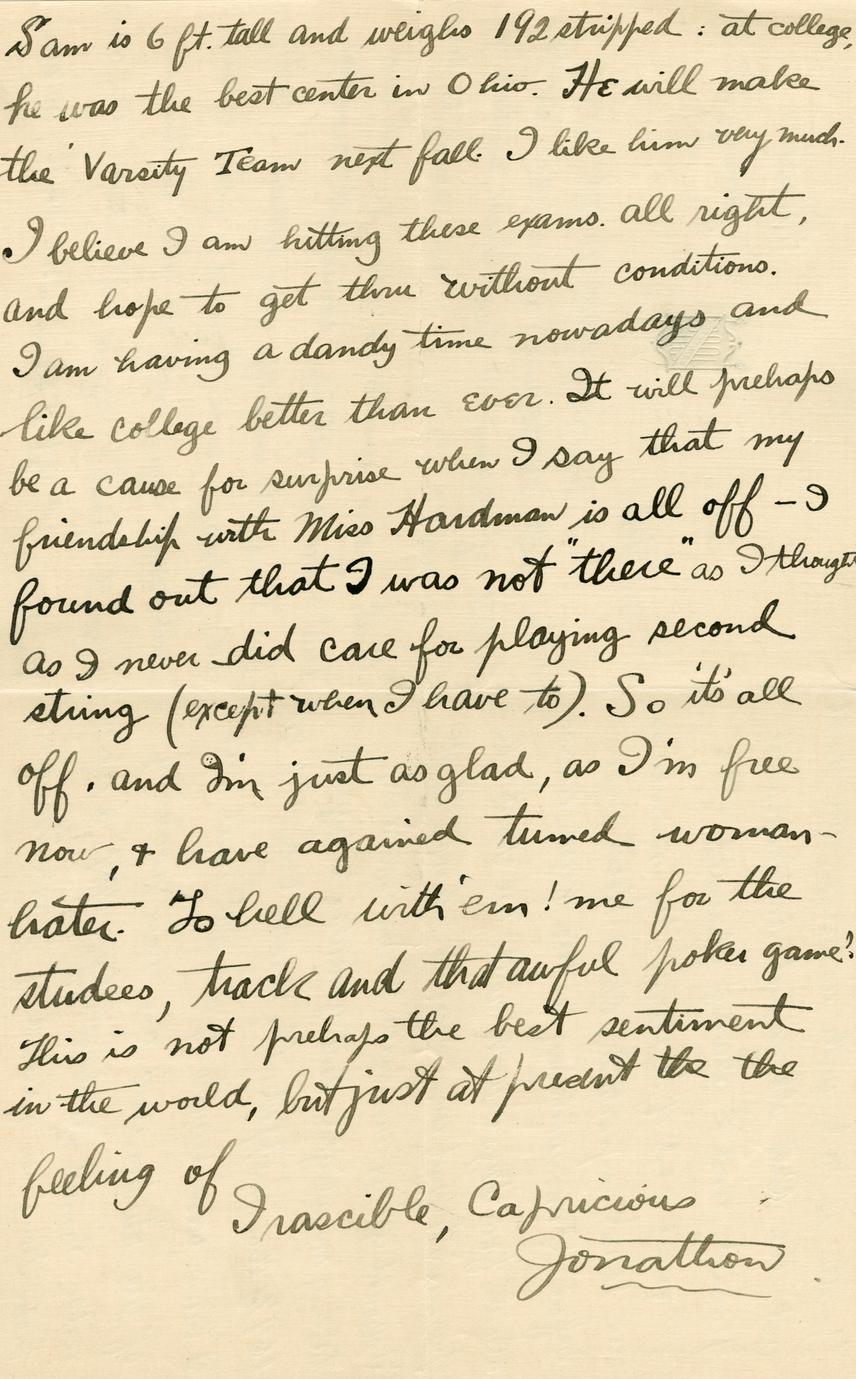 Sam is 6 ft. tall and weighs 192 stripped : at college,
he was the best center in Ohio. He will make
the 'Varsity Team next fall. I like him very much.
I believe I am hitting these exams. all right,
and hope to get thru without conditions.
I am having a dandy time nowadays and
like college better than ever. It will prehaps
be a cause for surprise when I say that my
friendship with Miss Hardman is all off – I
found out that I was not "there" as I thought
as I never did care for playing second
string (except when I have to). So it's all
off. and I'm just as glad, as I'm free
now, & have agained turned woman-
hater. To hell with 'em! me for the
studees, track and that awful poker game!
This is not prehaps the best sentiment
in the world, but just at present the the
feeling of
Irascible, Capricious
Jonathon